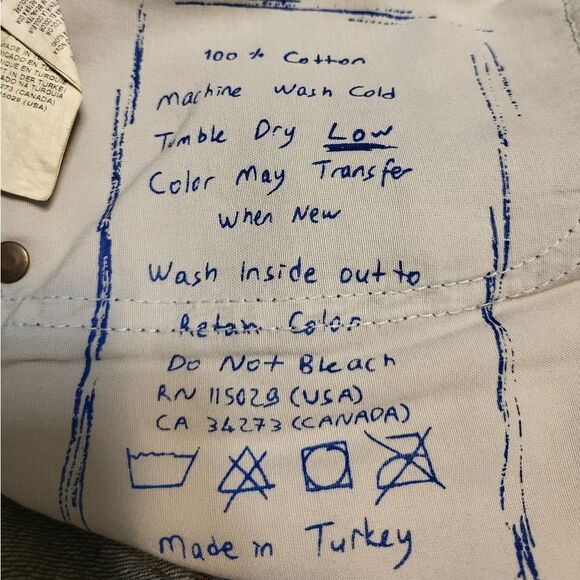 MADE IN
ICADO EN TURQU
QUE EN TURQUIE
T IN DER TÜRKEI
ADO NA TURQUIA
273 (CANADA)
5029 (USA)
100% Cotton
Machine Wash Cold
Tumble Dry Low
Color May Transfer
When New
Wash Inside out to
Retain Color
Do Not Bleach
RN 115029 (USA)
CA 34273 (CANADA)
Made in Turkey